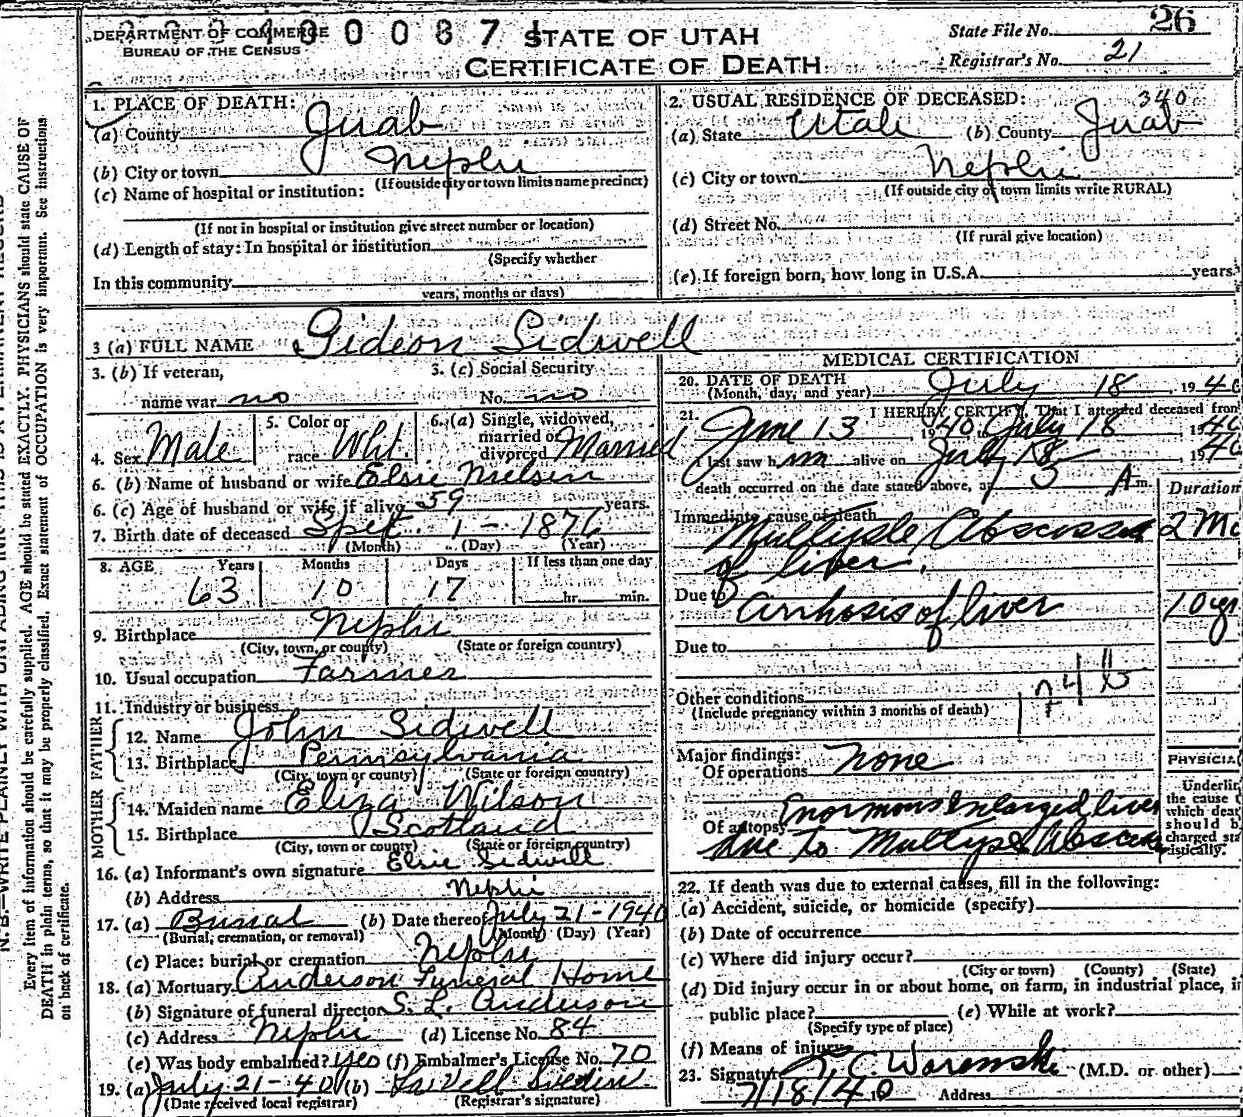 DEPARTMENT OF COMMERCE
BUREAU OF THE CENSUS
STATE OF UTAH
CERTIFICATE OF DEATH
State File No. 26
Registrar's No. 21
1. PLACE OF DEATH:
(a) County Juab
(b) City or town Nephi
(If outside city or town limits name precinct)
(c) Name of hospital or institution:
(If not in hospital or institution give street number or location)
(d) Length of stay: In hospital or institution
(Specify whether
In this community
years, months or days)
2. USUAL RESIDENCE OF DECEASED: 340
(a) State Utah (b) County Juab
(c) City or town Nephi
(If outside city or town limits write RURAL)
(d) Street No.
(If rural give location)
(e) If foreign born, how long in U.S.A. years
3 (a) FULL NAME Gideon Sidwell
3. (b) If veteran, 3. (c) Social Security
name war no No. no
4. Sex Male 5. Color or race Whit 6. (a) Single, widowed, married or divorced Married
6. (b) Name of husband or wife Elsie Nielsen
6. (c) Age of husband or wife if alive 59 years.
7. Birth date of deceased Spet 1 - 1876
(Month) (Day) (Year)
8. AGE Years Months Days If less than one day
63 10 17 hr. min.
9. Birthplace Nephi
(City, town, or county) (State or foreign country)
10. Usual occupation Farmer
11. Industry or business
FATHER
12. Name John Sidwell
13. Birthplace Pennsylvania
(City, town or county) (State or foreign country)
MOTHER
14. Maiden name Eliza Wilson
15. Birthplace Scotland
(City, town or county) (State or foreign country)
16. (a) Informant's own signature Elsie Sidwell
(b) Address Nephi
17. (a) Burial (b) Date thereof July 21-1940
(Burial, cremation, or removal) (Month) (Day) (Year)
(c) Place: burial or cremation Nephi
18. (a) Mortuary Anderson Funeral Home
(b) Signature of funeral director S. L. Anderson
(c) Address Nephi (d) License No. 84
(e) Was body embalmed? yes (f) Embalmer's License No. 70
19. (a) July 21-40 (b)
(Date received local registrar) (Registrar's signature)
MEDICAL CERTIFICATION
20. DATE OF DEATH
(Month, day, and year) July 18 1940
21. I HEREBY CERTIFY, That I attended deceased from
June 13, 1940, July 18 1940
I last saw him alive on July 18, 1940
death occurred on the date stated above, at A m.
Duration
Immediate cause of death
Multiple Abscesses 2 Mo
of liver.
Due to Cirrhosis of liver 10 yr
Due to
Other conditions 124 b
(Include pregnancy within 3 months of death)
Major findings:
Of operations none
PHYSICIA
Underlin
the cause t
which deat
should b
charged sta
tistically.
Enormous Enlarged liver
Of autopsy
due to Multiple Abscess
22. If death was due to external causes, fill in the following:
(a) Accident, suicide, or homicide (specify)
(b) Date of occurrence
(c) Where did injury occur?
(City or town) (County) (State)
(d) Did injury occur in or about home, on farm, in industrial place, in
public place? (e) While at work?
(Specify type of place)
(f) Means of injury
23. Signature C. Warenski (M.D. or other)
7/18/40 Address
Every item of information should be carefully supplied. AGE should be stated EXACTLY. PHYSICIANS should state CAUSE OF
DEATH in plain terms, so that it may be properly classified. Exact statement of OCCUPATION is very important. See instructions
on back of certificate.